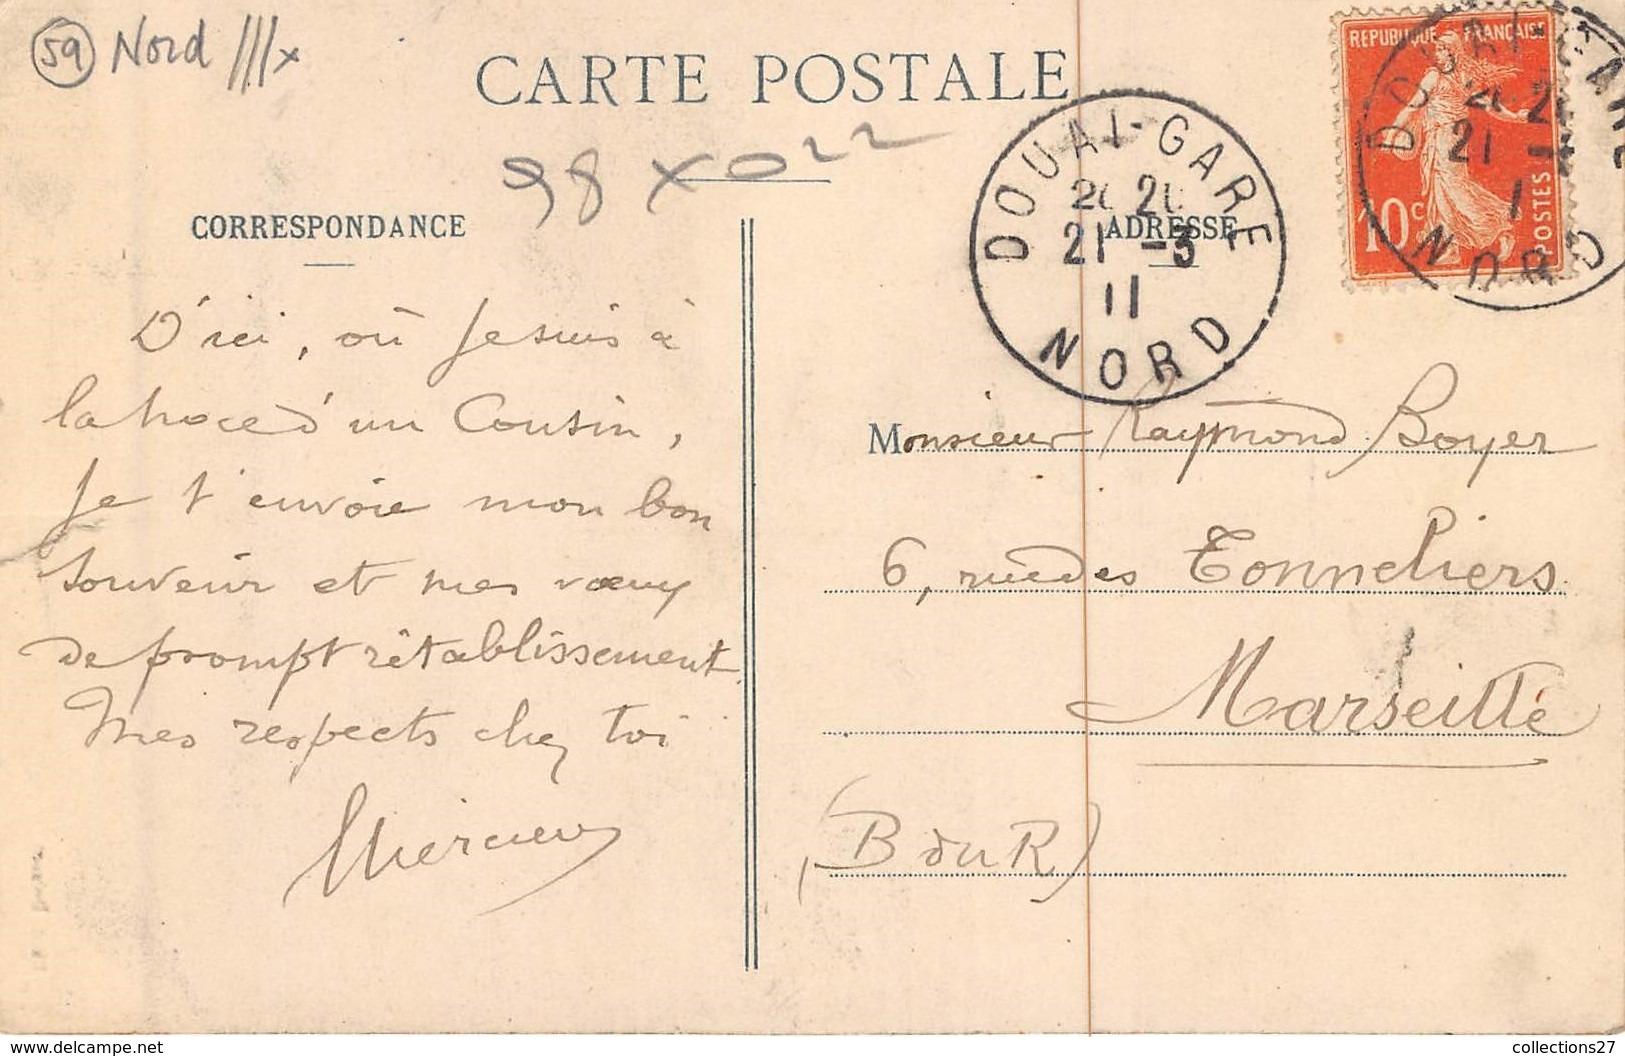 59 Nord
CARTE POSTALE
CORRESPONDANCE
ADRESSE
DOUAI-GARE
21 -3
11
NORD
REPUBLIQUE FRANÇAISE
10c
POSTES
DOUAI-GARE
21
NORD
D'ici, où je suis à
la noce d'un Cousin,
je t'envoie mon bon
souvenir et mes vœux
de prompt rétablissement.
Mes respects chez toi
Monsieur Raymond Boyer
6, rue des Tonneliers
Marseille
(B du R)
collections27